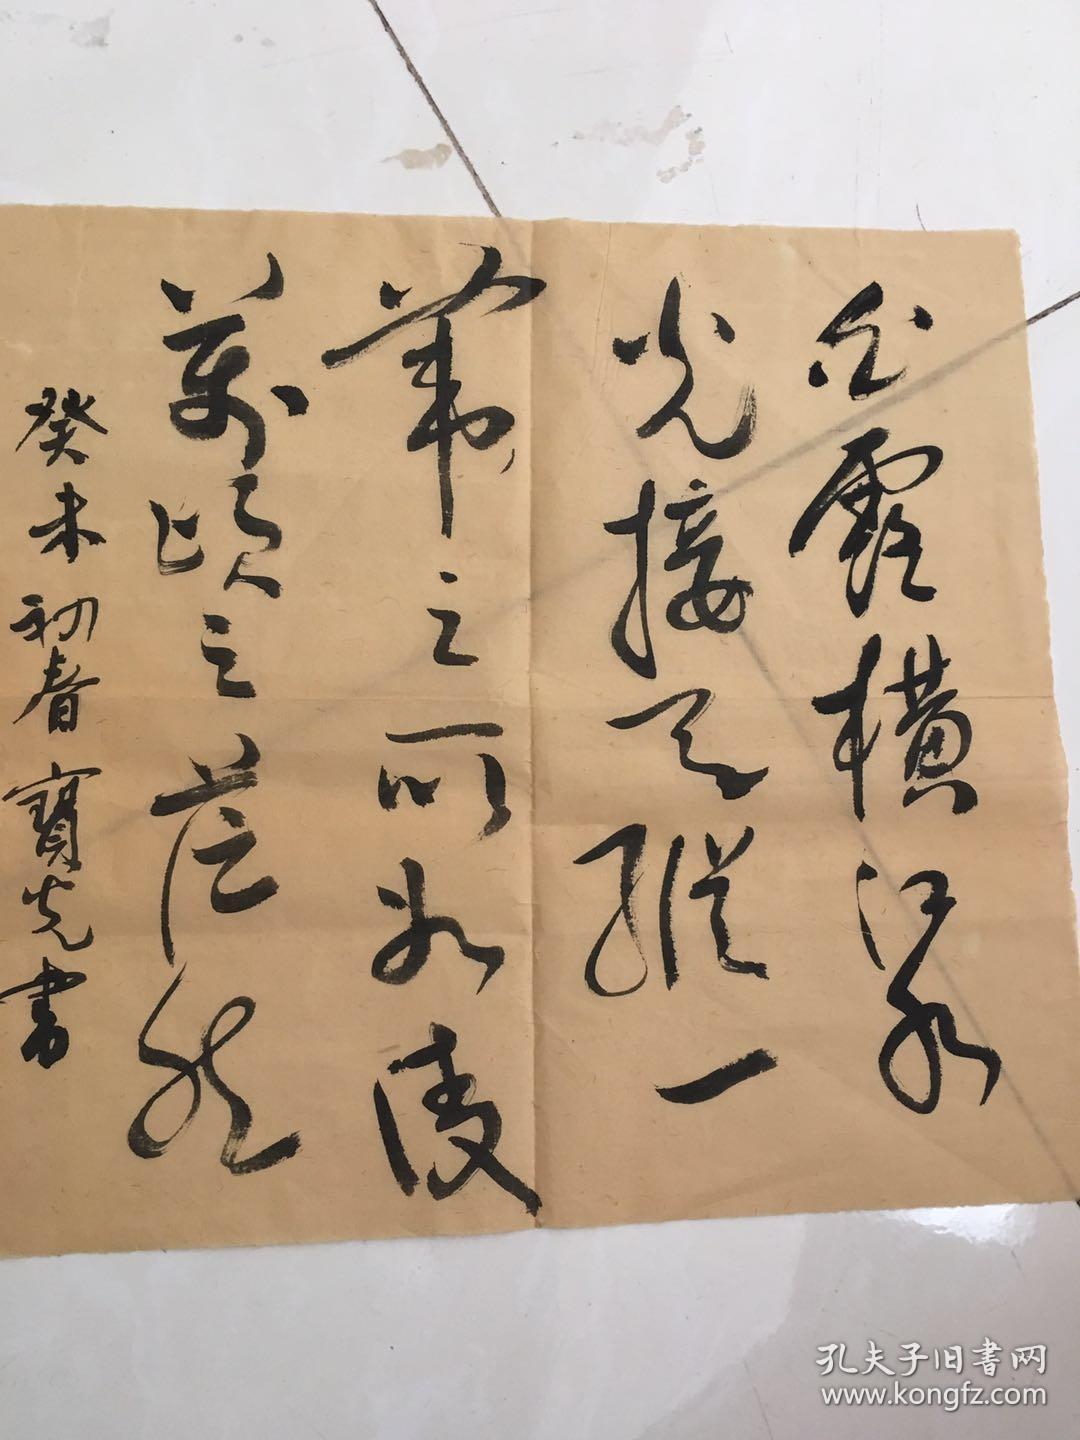 白露横江水
光接天縱一
葦之所如凌
萬頃之茫然
癸未初春寶光書
孔夫子旧書网
www.kongfz.com